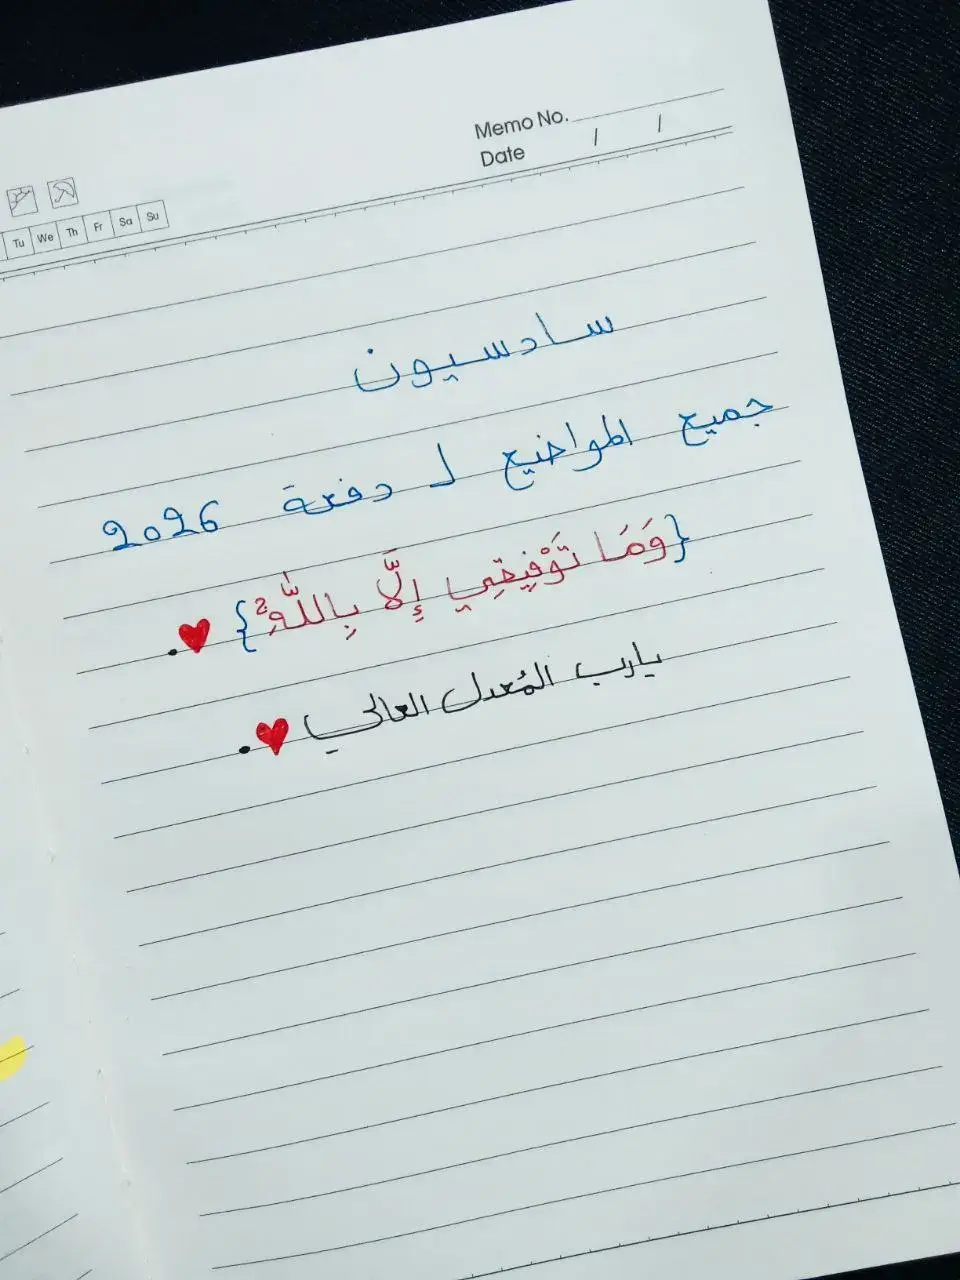 Memo No.
Date / /
Tu We Th Fr Sa Su
سادسيون
جميع المواضيع لـ دفعة 2026
{وَمَا تَوْفِيقِي إِلَّا بِاللَّهِ} ♥.
يارب المُعدل العالي ♥.